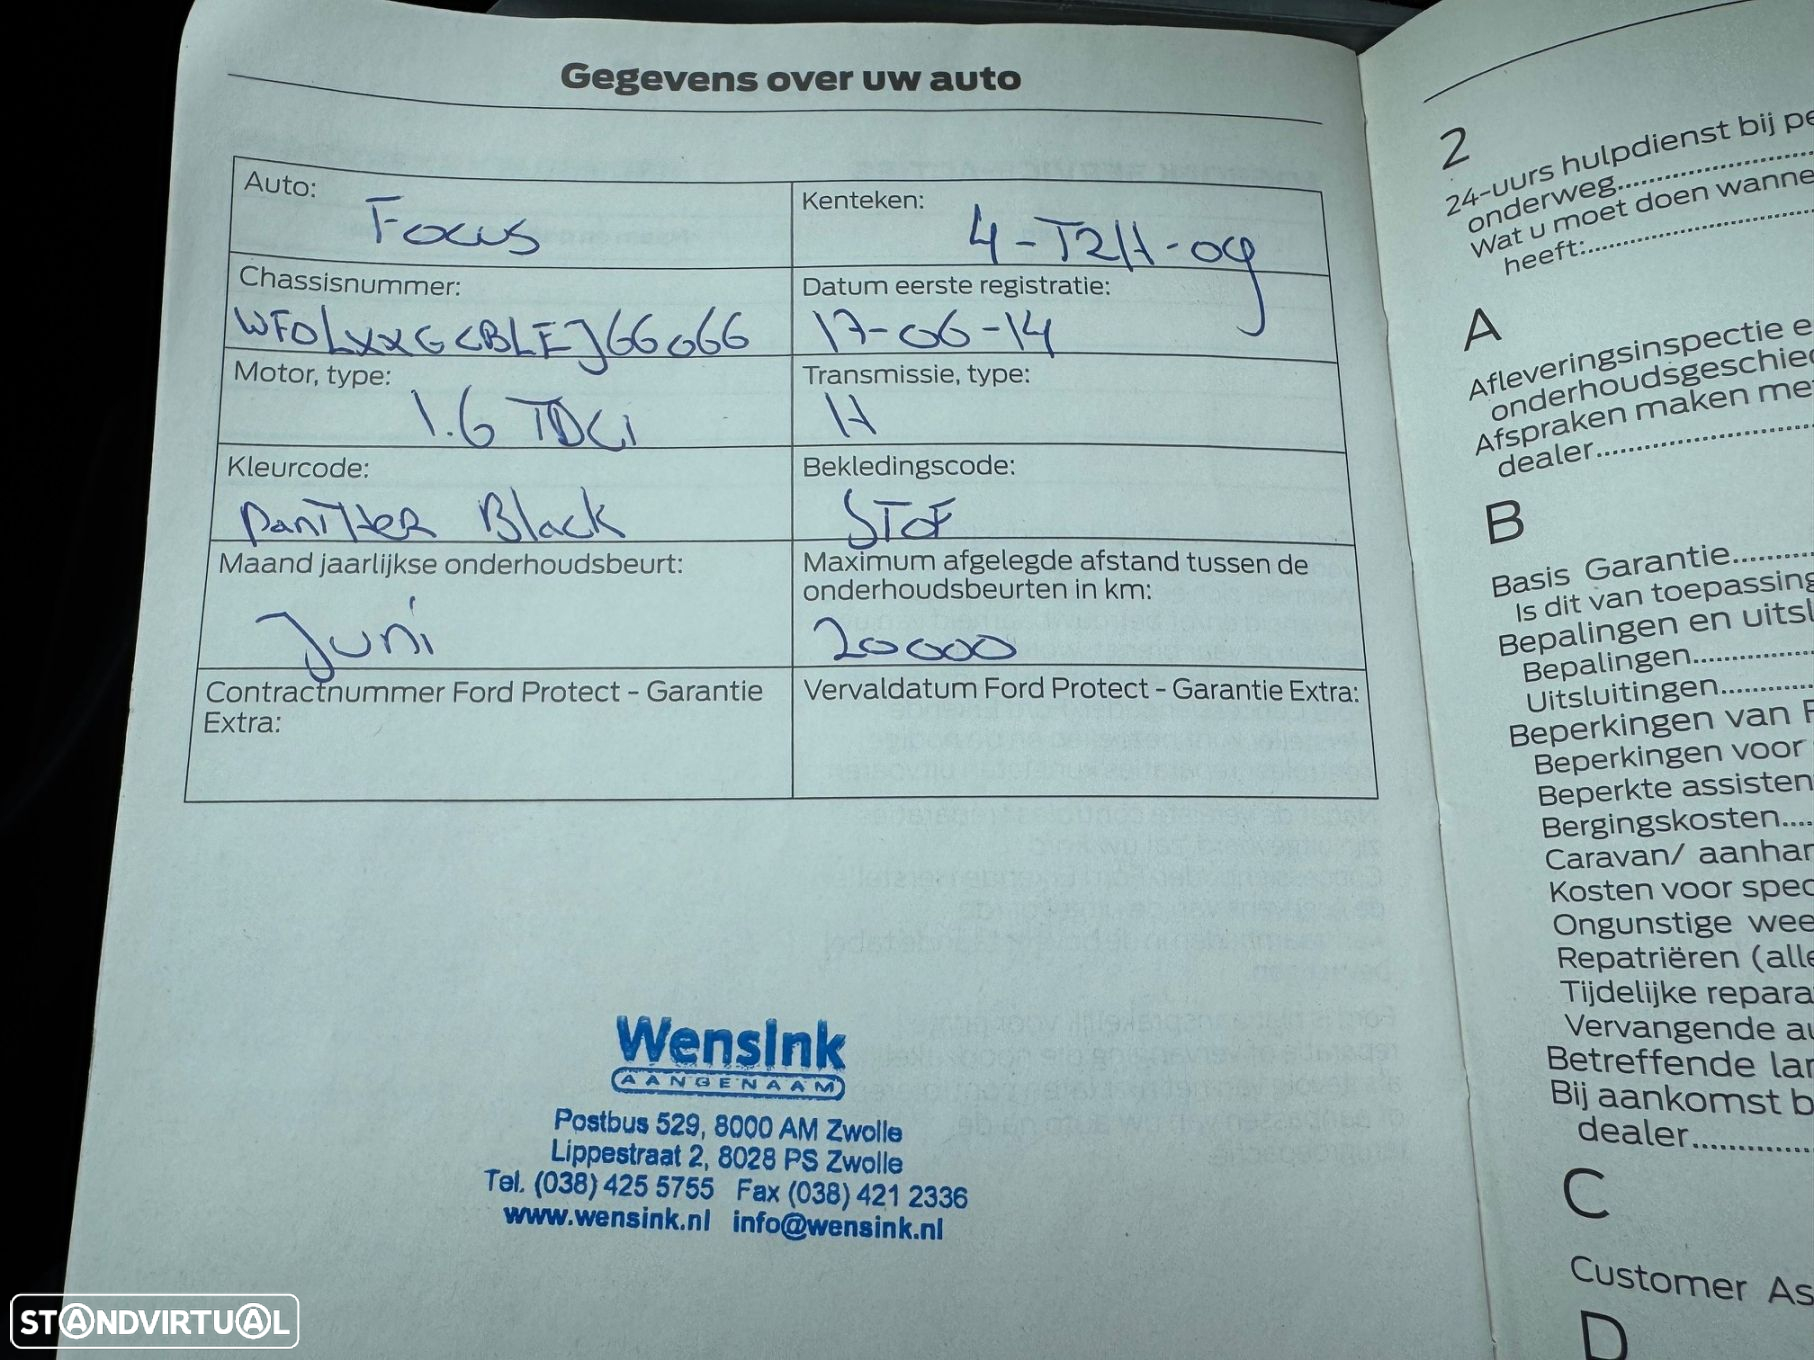 Gegevens over uw auto
Auto:
Focus
Kenteken:
4-TZH-09
Chassisnummer:
WF0LXXGCBLEJ66066
Datum eerste registratie:
17-06-14
Motor, type:
1.6 TDCi
Transmissie, type:
H
Kleurcode:
Panther Black
Bekledingscode:
STOF
Maand jaarlijkse onderhoudsbeurt:
Juni
Maximum afgelegde afstand tussen de
onderhoudsbeurten in km:
20000
Contractnummer Ford Protect - Garantie
Extra:
Vervaldatum Ford Protect - Garantie Extra:
Wensink
AANGENAAM
Postbus 529, 8000 AM Zwolle
Lippestraat 2, 8028 PS Zwolle
Tel. (038) 425 5755 Fax (038) 421 2336
www.wensink.nl info@wensink.nl
2
24-uurs hulpdienst bij pe
onderweg
Wat u moet doen wanne
heeft:
A
Afleveringsinspectie e
onderhoudsgeschied
Afspraken maken me
dealer
B
Basis Garantie
Is dit van toepassing
Bepalingen en uitsl
Bepalingen
Uitsluitingen
Beperkingen van F
Beperkingen voor
Beperkte assisten
Bergingskosten
Caravan/ aanhan
Kosten voor spec
Ongunstige wee
Repatriëren (alle
Tijdelijke repara
Vervangende au
Betreffende lan
Bij aankomst b
dealer
C
Customer As
D
STANDVIRTUAL